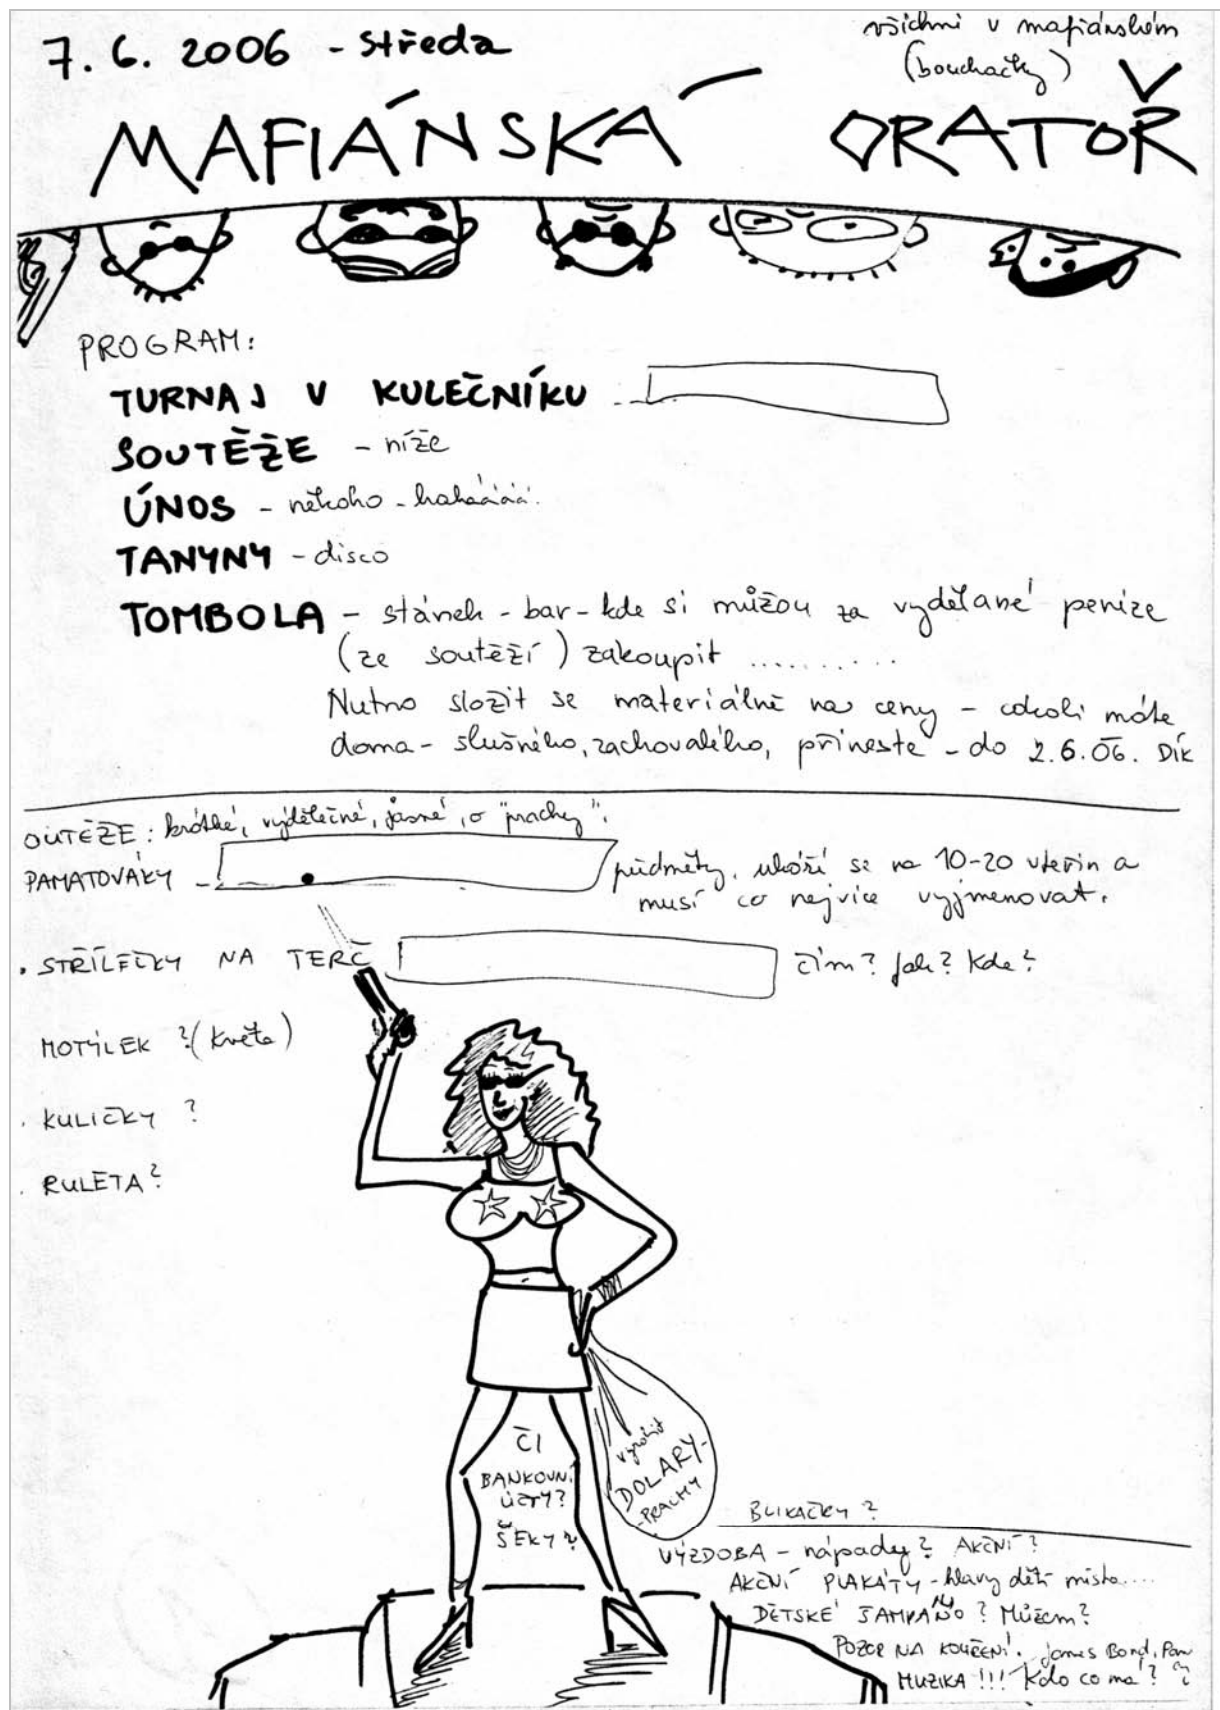 7. 6. 2006 - středa
všichni v mafiánském
(bouchačky)
MAFIÁNSKÁ ORATOŘ
PROGRAM:
TURNAJ V KULEČNÍKU
SOUTĚŽE - níže
ÚNOS - někoho - haháááá.
TANYNY - disco
TOMBOLA - stánek - bar - kde si můžou za vydělané peníze
(ze soutěží) zakoupit ..........
Nutno složit se materiálně na ceny - cokoli máte
doma - slušného, zachovalého, přineste - do 2.6.06. DÍK
OUTĚŽE: krátké, výdělečné, jasné, o "prachy".
PAMATOVÁKY - předměty, ukáží se na 10-20 vteřin a
musí co nejvíce vyjmenovat.
. STŘÍLEČKY NA TERČ čím? Jak? Kde?
MOTÝLEK ? (Květa)
. KULIČKY ?
. RULETA?
ČI
BANKOVNÍ
ÚČTY?
ŠEKY?
vyrobit
DOLARY -
- PRACHY
BLIKAČKY ?
VÝZDOBA - nápady? AKČNÍ?
AKČNÍ PLAKÁTY - hlavy dětí místo....
DĚTSKÉ ŠAMPÁŇO ? Můžem?
POZOR NA KOUŘENÍ. James Bond,
MUZIKA !!! Kdo co má? ?